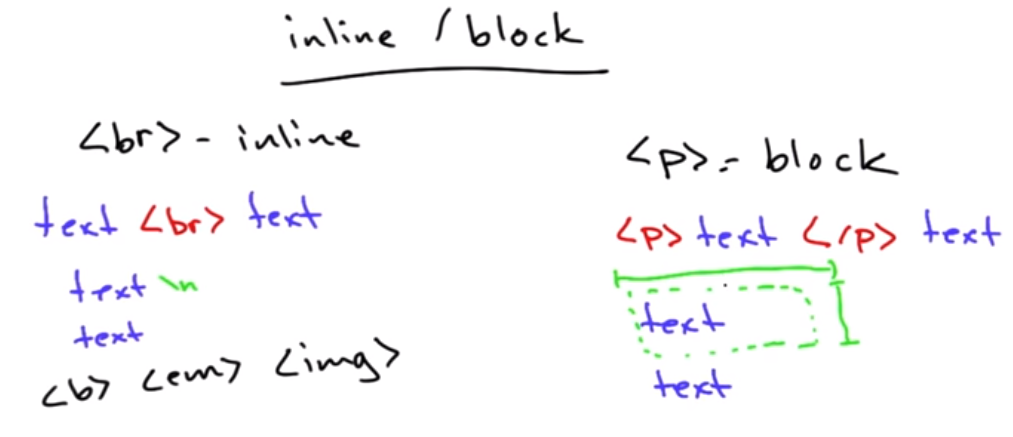 inline / block
<br> - inline
text <br> text
text \n
text
<b> <em> <img>
<p> - block
<p> text </p> text
text
text